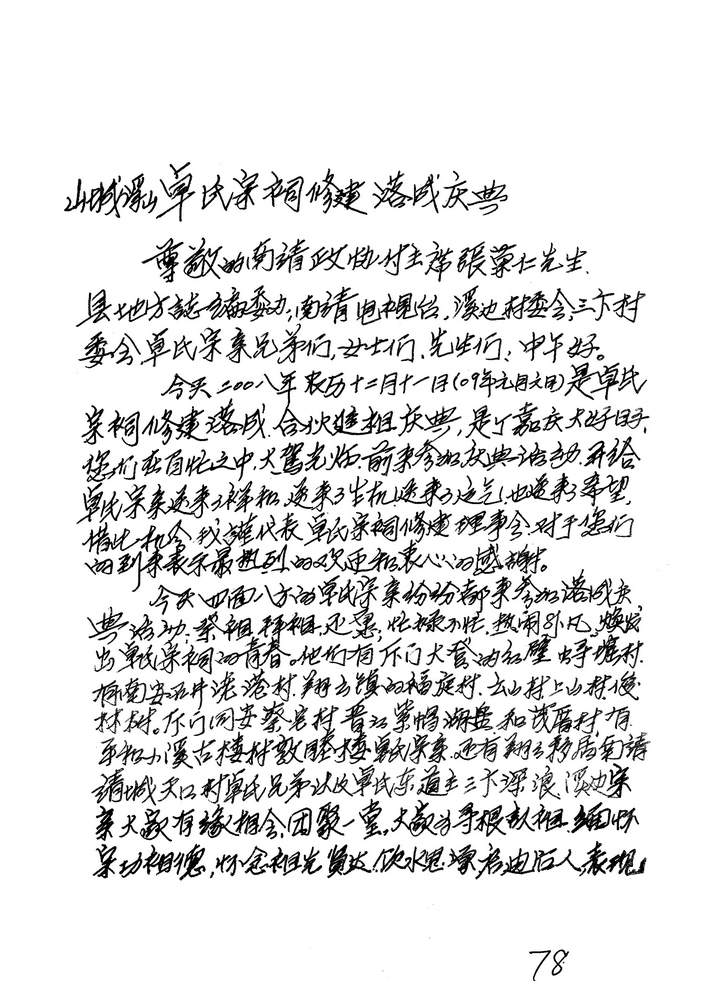 山城溪边卓氏宗祠修建落成庆典
尊敬的南靖政协付主席張荣仁先生、
县地方誌编委办，南靖电视台，溪边村委会，三卞村
委会卓氏宗亲兄弟们，女士们，先生们：中午好。
今天二00八年农历十二月十一日(09年元月6日)是卓氏
宗祠修建落成、合伙進祖庆典，是个嘉庆大好日子，
您们在百忙之中，大驾光临，前来参加庆典活动，并给
卓氏宗亲送来了祥和，送来了生机，送来了运气，也送来了希望，
借此机会我谨代表卓氏宗祠修建理事会，对于您们
的到来表示最热烈的欢迎和衷心的感謝。
今天四面八方的卓氏宗亲纷纷都来参加落成庆
典活动，祭祖拜祖，还愿，忙碌不忙，热闹非凡，焕发
出卓氏宗祠的青春。他们有厦门大登的红壁村
有南安石井港村，翔云镇的福庭村，云山村上山村
林树。厦门同安蔡宅村晋江湖岳和茂厝村，有
平和小溪古楼村敦睦楼卓氏宗亲，还有翔云移居南靖
靖城天口村卓氏兄弟以及卓氏东道主三卞深浪、溪边宗
亲大家有缘相会，团聚一堂，大家为寻根认祖，缅怀
宗功祖德，怀念祖先贤达，饮水思源，启迪后人，表现
78